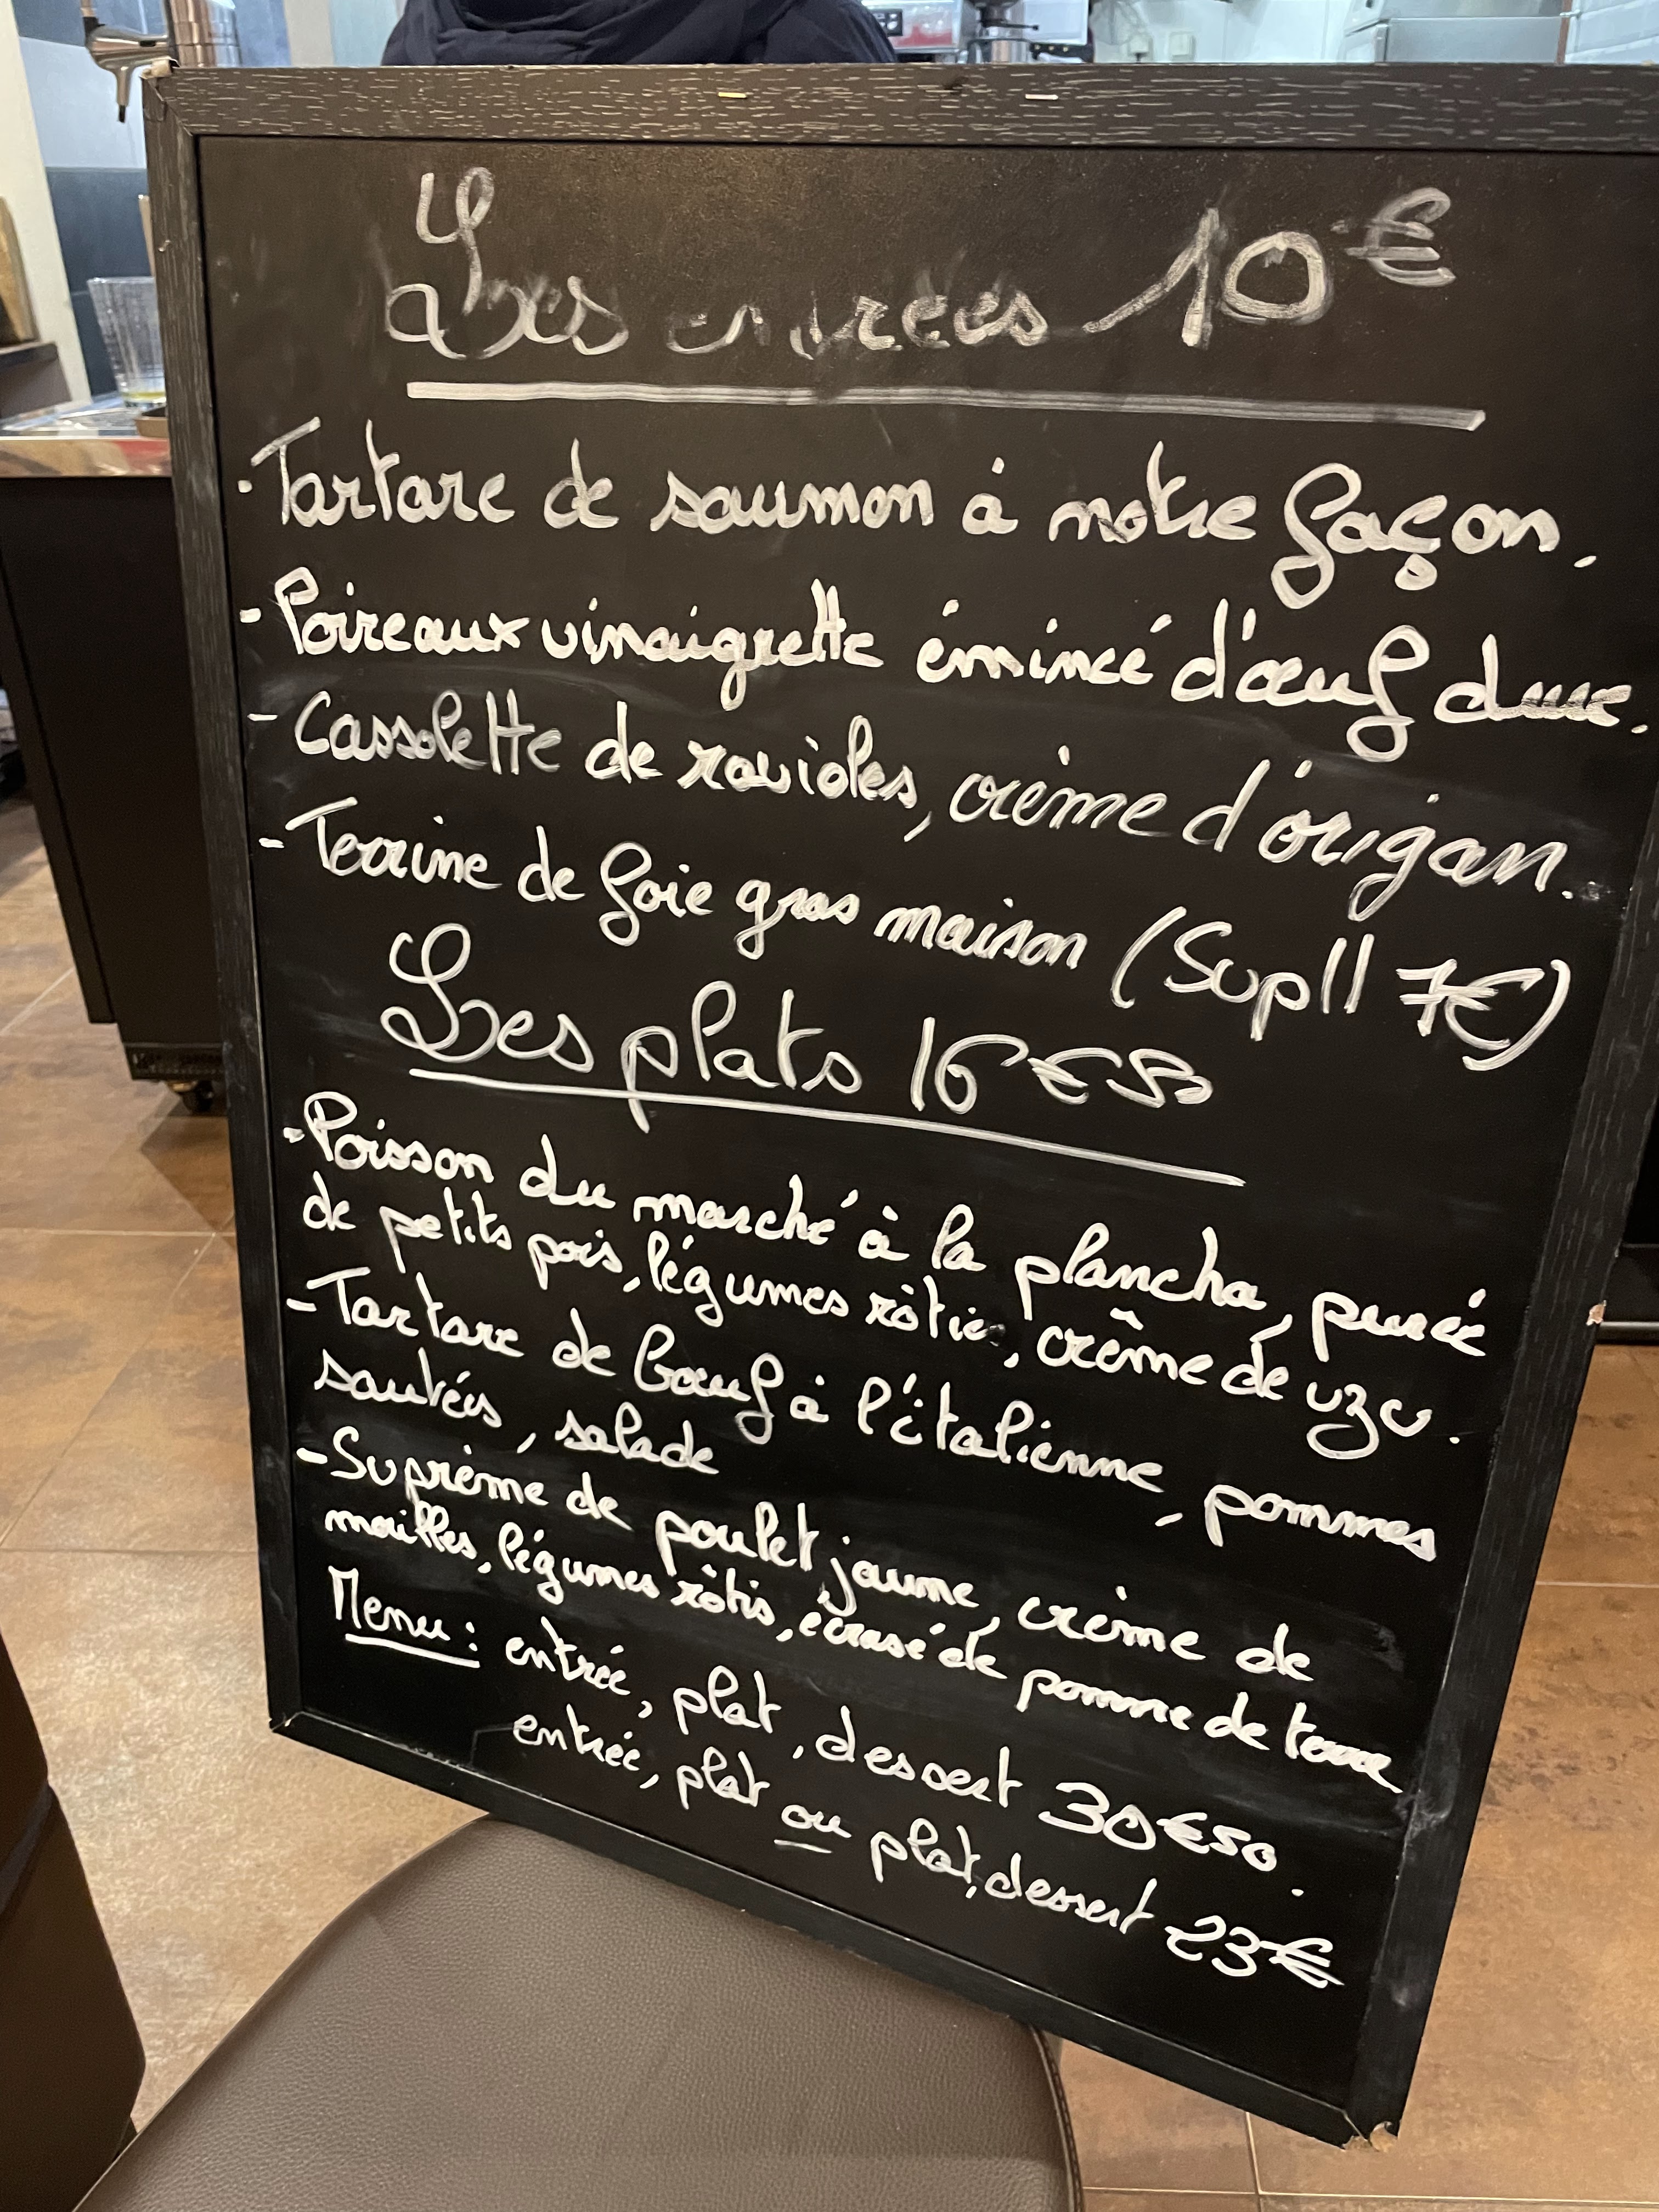 Les entrées 10€
- Tartare de saumon à notre façon.
- Poireaux vinaigrette émincé d'œuf dure.
- Cassolette de ravioles, crème d'origan.
- Terrine de foie gras maison (Supll 7€)
Les plats 16€50
- Poisson du marché à la plancha, purée
de petits pois, légumes rôtis, crême de uzu.
- Tartare de bœuf à l'italienne, pommes
sautéés, salade
- Suprème de poulet jaune, crème de
morilles, légumes rôtis, écrasé de pomme de terre
Menu : entrée, plat, dessert 30€50.
entrée, plat ou plat, dessert 23€